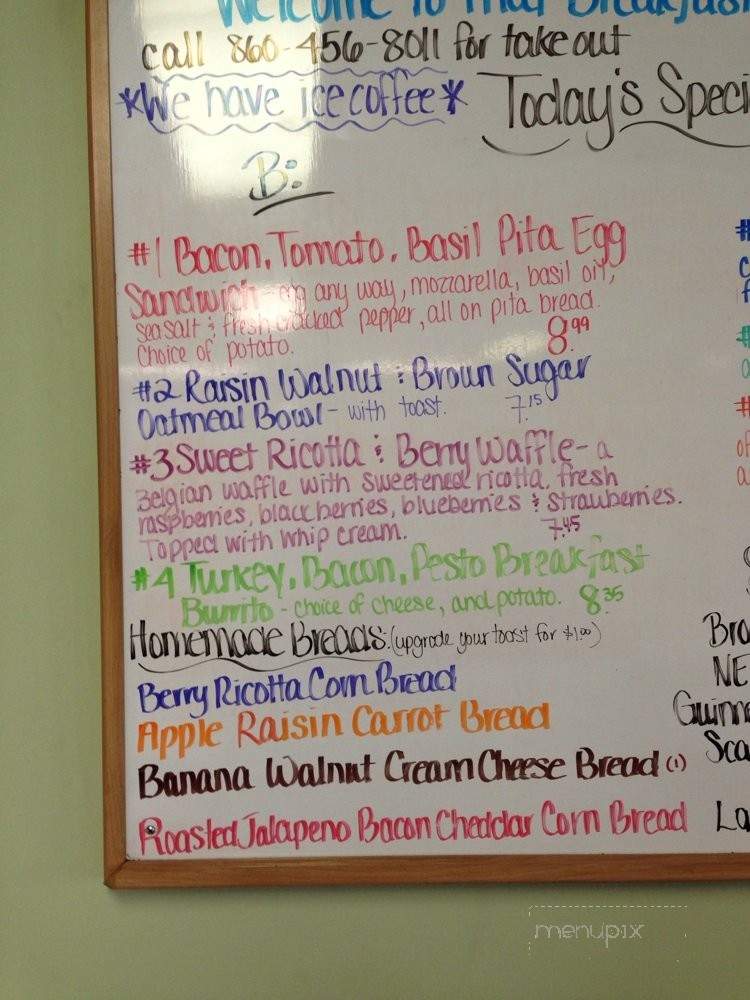 Welcome To That Breakfast
call 860-456-8011 for take out
*We have ice coffee* Today's Speci
B:
#1 Bacon, Tomato, Basil Pita Egg
Sandwich - egg any way, mozzarella, basil oil,
sea salt & fresh cracked pepper, all on pita bread.
Choice of potato. 8.99
#2 Raisin Walnut & Brown Sugar
Oatmeal Bowl - with toast. 7.15
#3 Sweet Ricotta & Berry Waffle - a
Belgian waffle with sweetened ricotta, fresh
raspberries, blackberries, blueberries & strawberries.
Topped with whip cream. 7.45
#4 Turkey, Bacon, Pesto Breakfast
Burrito - choice of cheese, and potato. 8.35
Homemade Breads: (upgrade your toast for $1.00)
Berry Ricotta Corn Bread
Apple Raisin Carrot Bread
Banana Walnut Cream Cheese Bread (1)
Roasted Jalapeno Bacon Cheddar Corn Bread
Bro
NE
Guinne
Sca
La
menupix